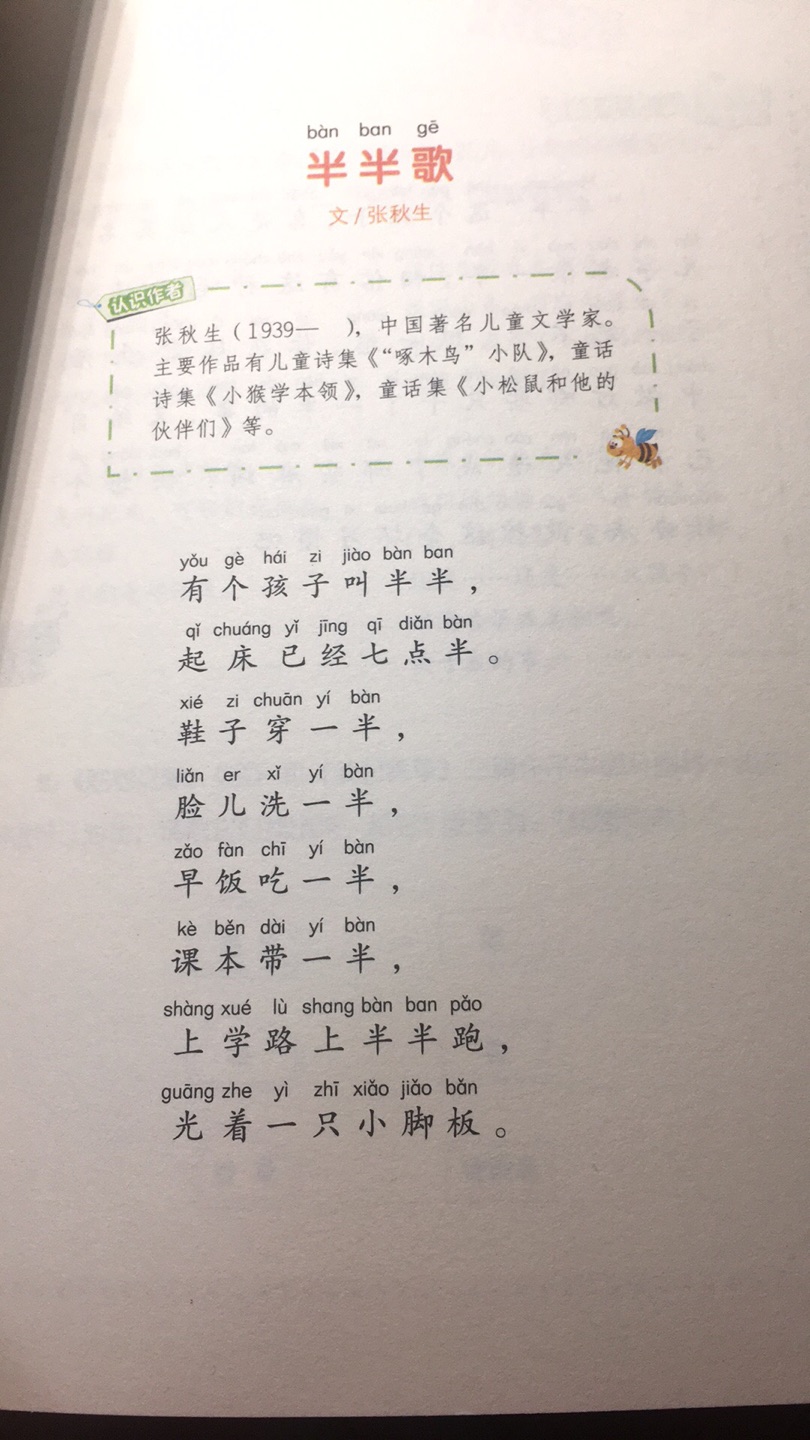 bàn ban gē
半半歌
文/张秋生
认识作者
张秋生(1939— ),中国著名儿童文学家。
主要作品有儿童诗集《“啄木鸟”小队》,童话
诗集《小猴学本领》,童话集《小松鼠和他的
伙伴们》等。
yǒu gè hái zi jiào bàn ban
有个孩子叫半半,
qǐ chuáng yǐ jīng qī diǎn bàn
起床已经七点半。
xié zi chuān yí bàn
鞋子穿一半,
liǎn er xǐ yí bàn
脸儿洗一半,
zǎo fàn chī yí bàn
早饭吃一半,
kè běn dài yí bàn
课本带一半,
shàng xué lù shang bàn ban pǎo
上学路上半半跑,
guāng zhe yì zhī xiǎo jiǎo bǎn
光着一只小脚板。